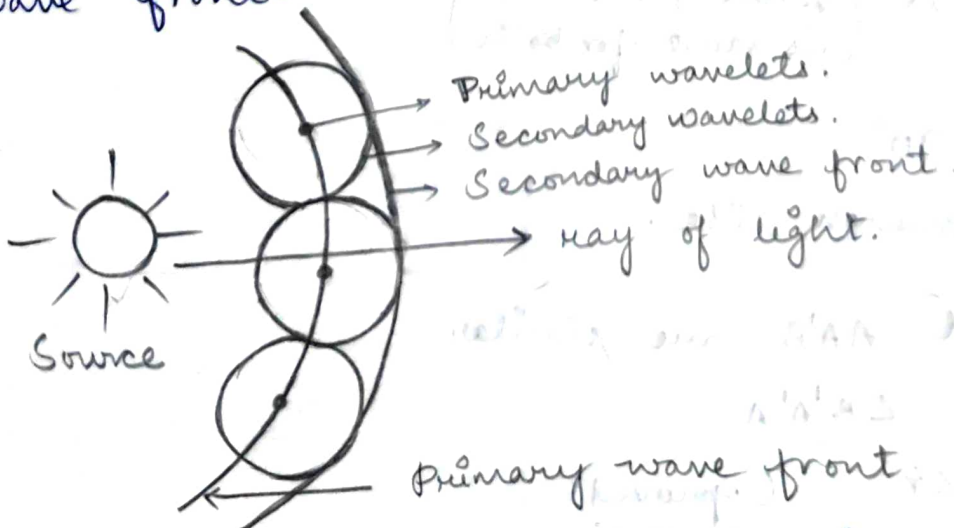 wave front
Primary wavelets.
Secondary wavelets.
Secondary wave front.
ray of light.
Source
Primary wave front